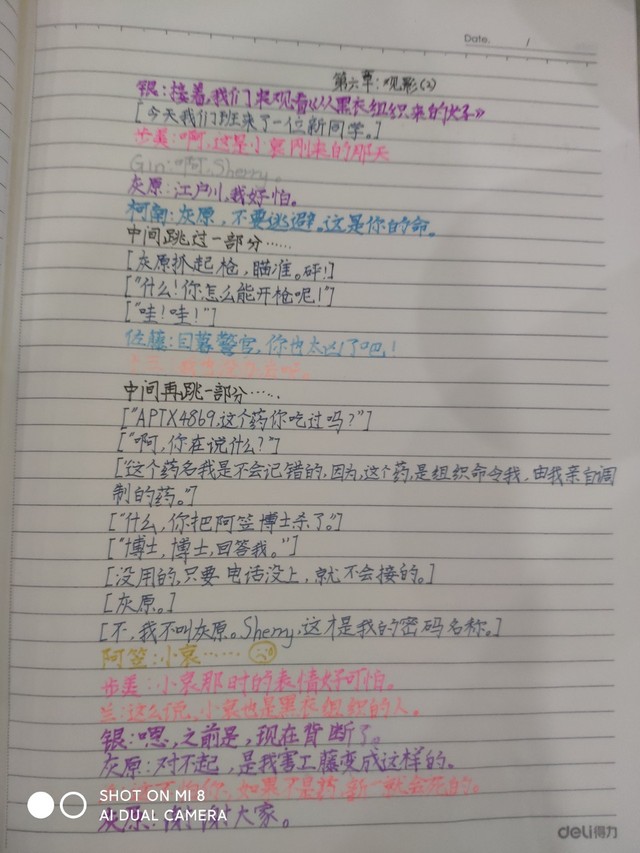 Date. /
第六章:观影(2)
银:接着,我们来观看《从黑衣组织来的女子》
[今天我们班来了一位新同学。]
步美:啊,这是小哀刚来的那天
Gin:啊,Sherry。
灰原:江户川,我好怕。
柯南:灰原,不要逃避。这是你的命。
中间跳过一部分……
[灰原抓起枪,瞄准。砰!]
["什么!你怎么能开枪呢!"]
["哇!哇!"]
佐藤:目暮警官,你也太凶了吧!
中间再跳一部分……
["APTX4869,这个药你吃过吗?"]
["啊,你在说什么?"]
["这个药名我是不会记错的,因为,这个药,是组织命令我,由我亲自调
制的药。"]
["什么,你把阿笠博士杀了。"]
["博士,博士,回答我。"]
[没用的,只要电话没上,就不会接的。]
[灰原。]
[不,我不叫灰原。Sherry,这才是我的密码名称。]
阿笠:小哀……
步美:小哀那时的表情好可怕。
兰:这么说,小哀也是黑衣组织的人。
银:嗯,之前是,现在背断了。
灰原:对不起,是我害工藤变成这样的。
如果不是药,新一就会死的。
灰原:谢谢大家。
SHOT ON MI 8
AI DUAL CAMERA
deli得力